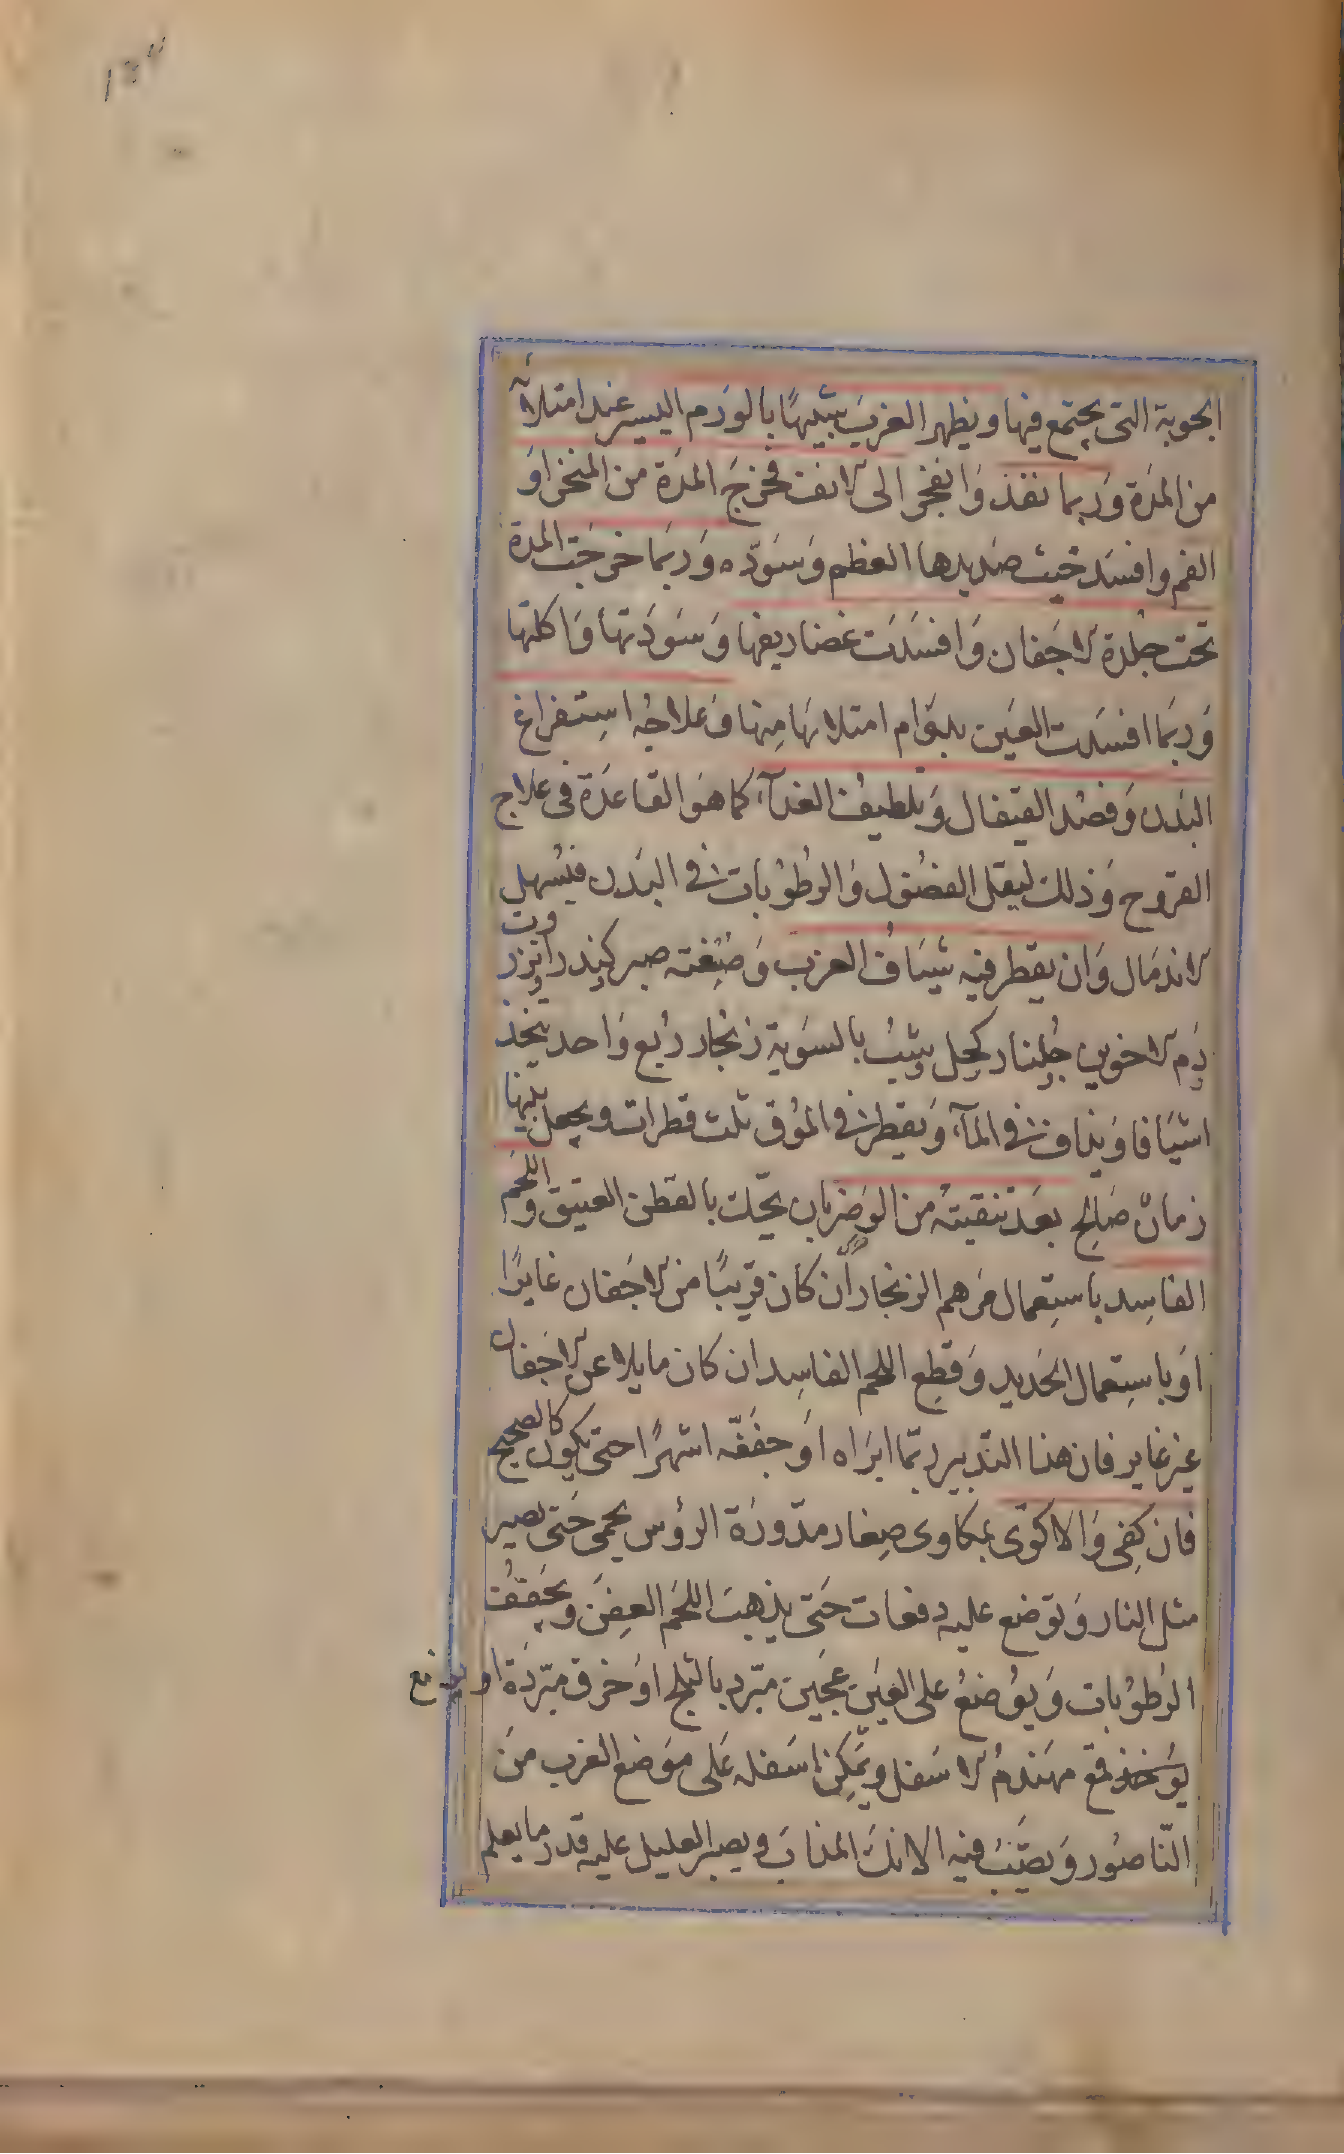 الجوبة التى يجتمع فيها ويظهر الغرب شبيهًا بالورم اليسير عند امتلائه
من المدة وربما نفذ وانفجر الى الانف فخرج المدة من المنخر او
الفم وافسد خبث صديدها العظم وسوّده وربما خرجت المدة
تحت جلدة الاجفان وافسدت غضاريفها وسودتها واكلتها
وربما افسدت العين بدوام امتلائها منها وعلاجه استفراغ
البدن وفصد القيفال وتلطيف الغدآء كما هو القاعدة فى علاج
القروح وذلك ليقل الفضول والرطوبات فى البدن فيسهل
الاندمال وان يقطر فيه شياف الغرب وصفته صبر كندر انزروت
دم الاخوين جلنار كحل شب بالسوية زنجار ربع واحد يتخذ
اشيافا ويذاف فى المآء ويقطر فى الموق ثلث قطرات ويجعل بينها
زمان صالح بعد تنقيته من الوضر بان يحك بالقطن العتيق واللحم
الفاسد باستعمال مرهم الزنجار ان كان قريبًا من الاجفان غايرًا
او باستعمال الحديد وقطع اللحم الفاسد ان كان مايلا عن الاجفان
غير غاير فان هذا التدبير ربّما ابراه او جففه اشهرًا حتى يكون كالصحيح
فان كفى والا كوى بمكاوى صغار مدورة الرؤس يحمى حتى تصير
مثل النار وتوضع عليه دفعات حتى يذهب اللحم العفن ويجفف
الرطوبات ويوضع على العين عجين مبرد بالثلج او خرق مبردة او
يوخذ قمع مهندم الاسفل ويمكن اسفله على موضع الغرب من
الناصور ويصب فيه الانك المذاب ويصبر العليل عليه قدر ما يعلم